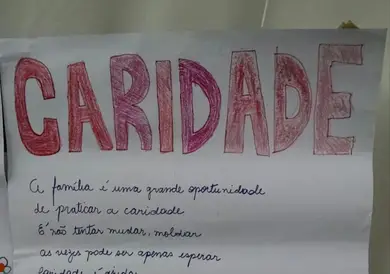 CARIDADE
A família é uma grande oportunidade
de praticar a caridade
É não tentar mudar, moldar
as vezes pode ser apenas esperar
Caridade é